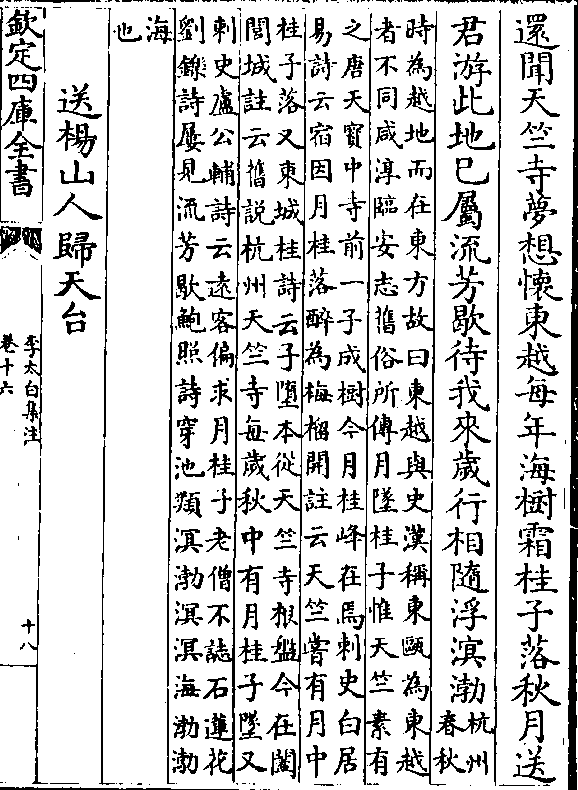 還聞天竺寺夢想懷東越每年海樹霜桂子落秋月送
君游此地已屬流芳歇待我來歲行相隨浮溟渤
杭州
春秋
時為越地而在東方故曰東越與史漢稱東甌為東越
者不同咸淳臨安志舊俗所傳月墜桂子惟天竺素有
之唐天寳中寺前一子成樹今月桂峰在焉刺史白居
易詩云宿因月桂落醉為梅榴開註云天竺嘗有月中
桂子落又東城桂詩云子墮本從天竺寺根盤今在闔
閭城註云舊說杭州天竺寺每歲秋中有月桂子墜又
刺史盧公輔詩云遠客偏求月桂子老僧不誌石蓮花
劉鑠詩屢見流芳歇鮑照詩穿池類溟渤溟溟海渤渤
海
也
送楊山人歸天台
欽定四庫全書
李太白集注
卷十六
十八